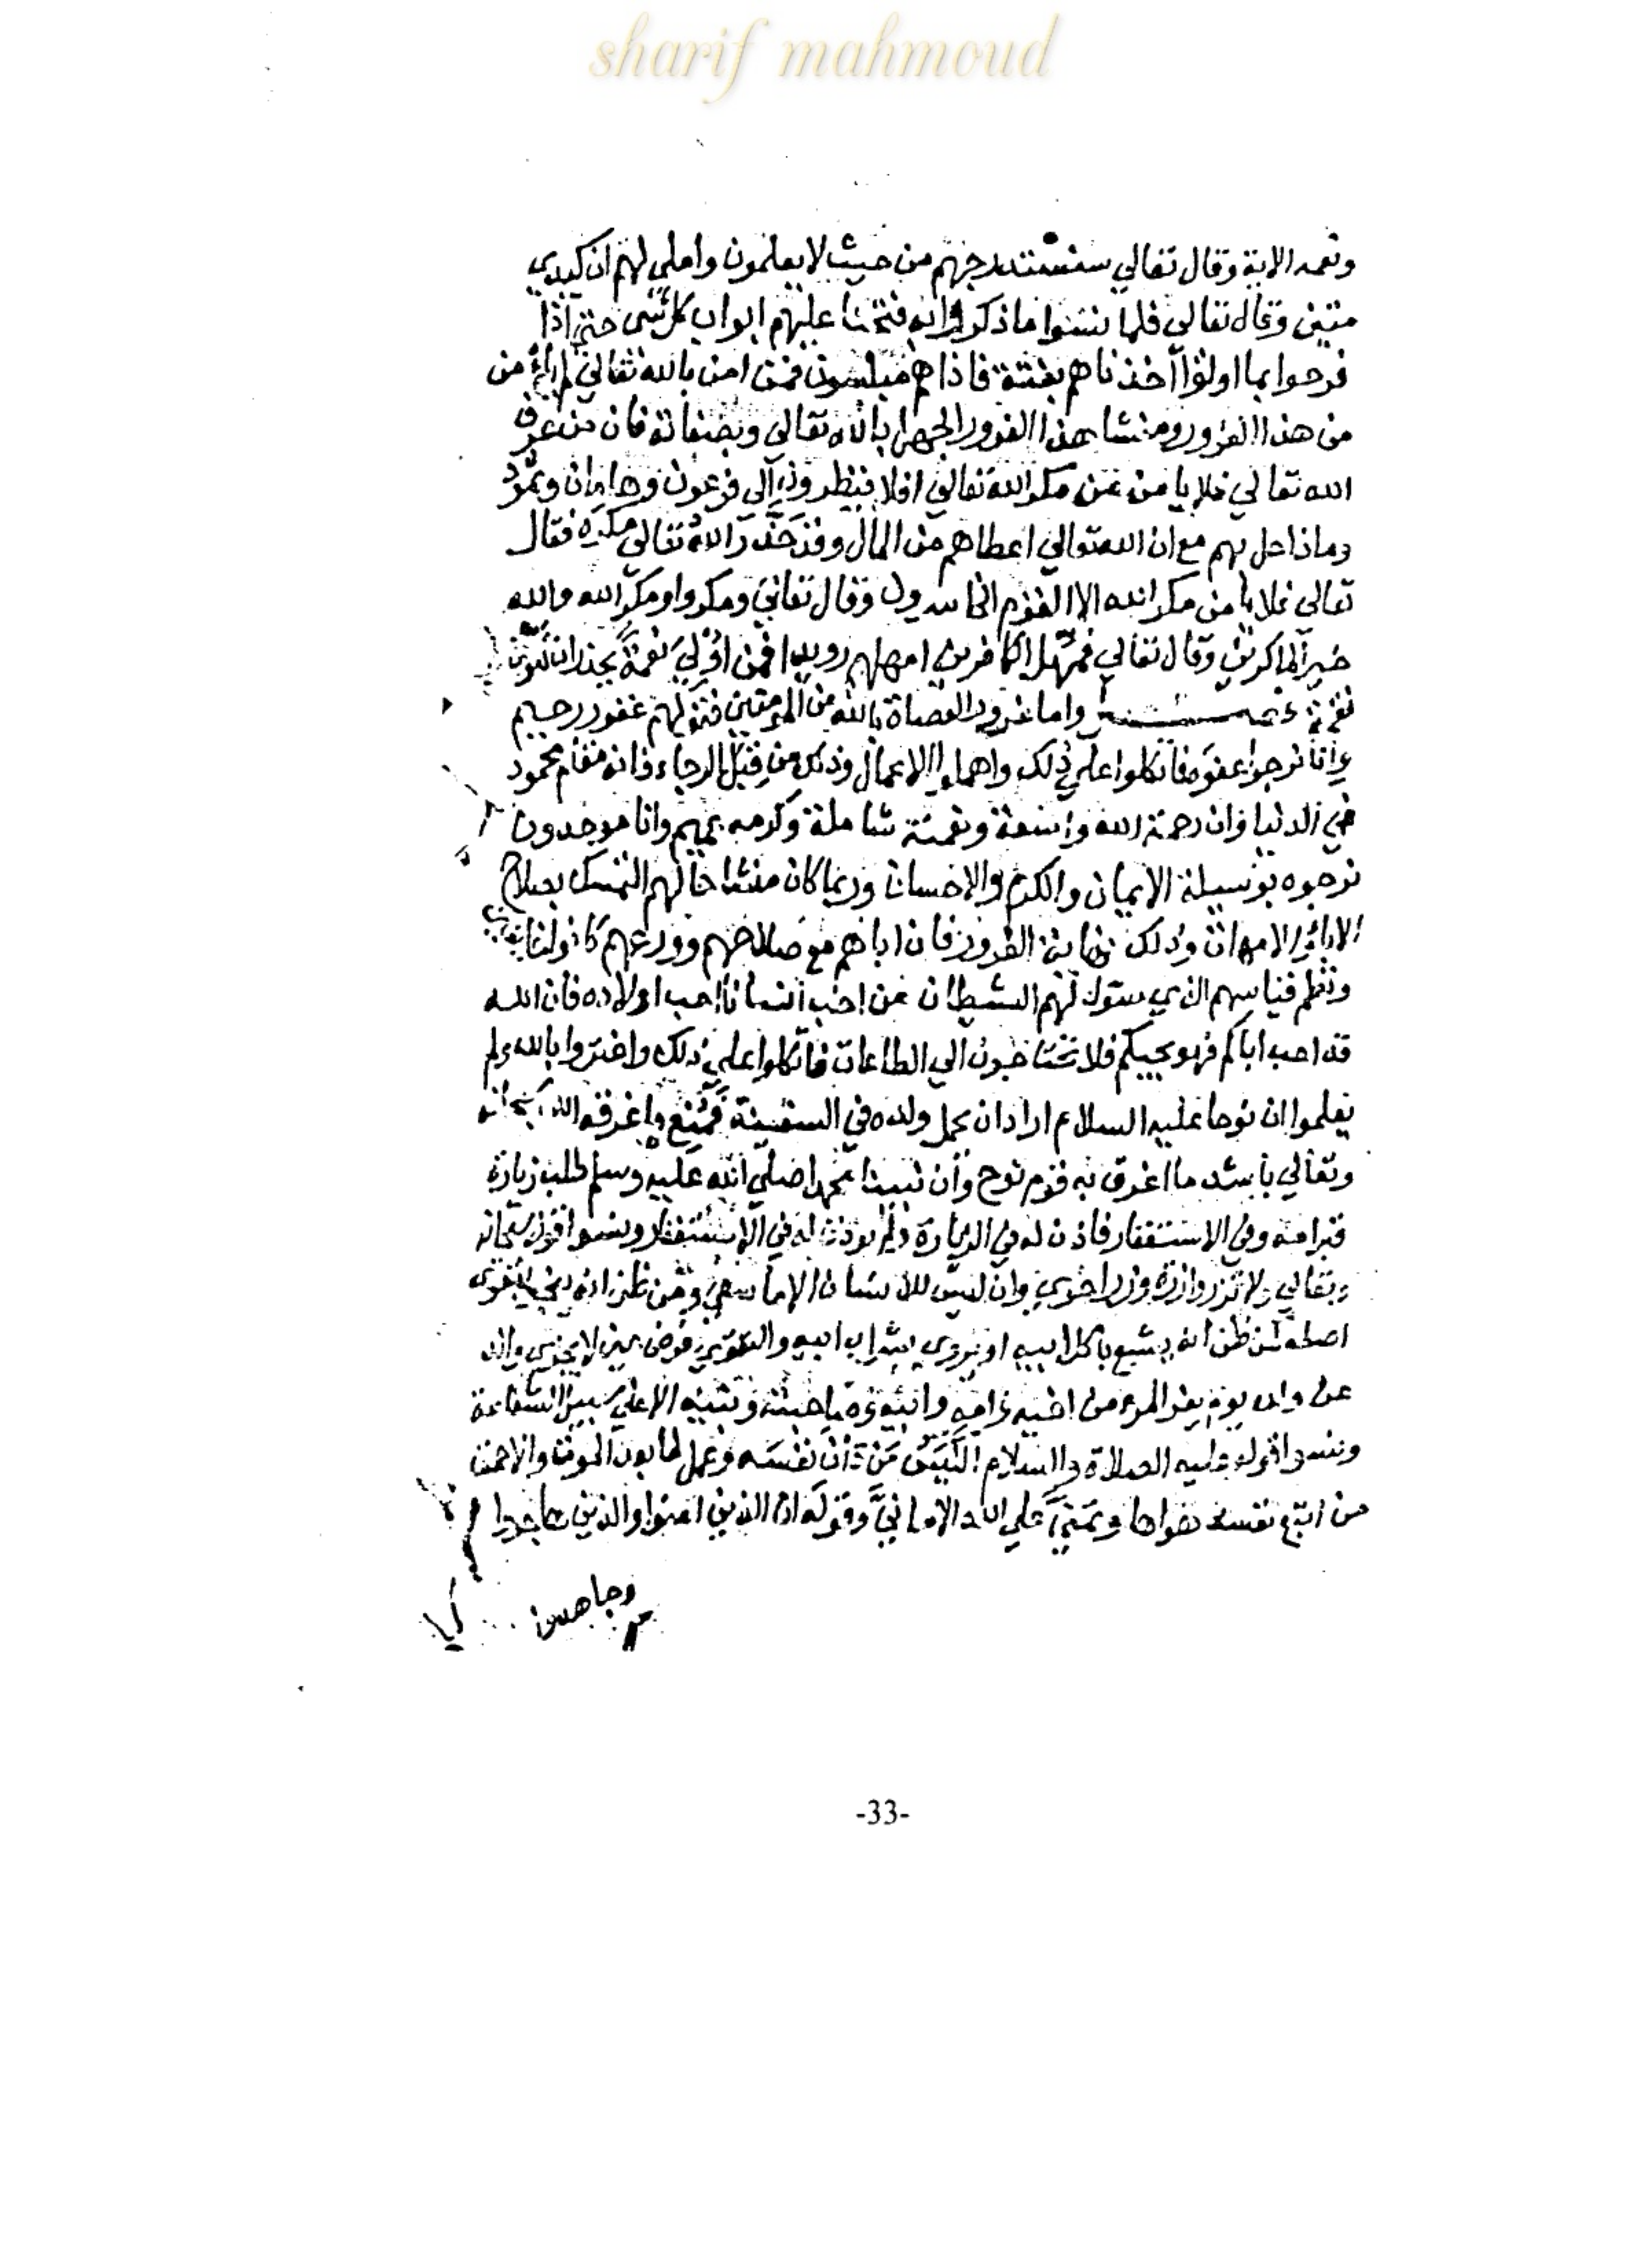 sharif mahmoud
ونعمه الاية وقال تعالي سنستدرجهم من حيث لا يعلمون واملي لهم ان كيدي
متين وقال تعالي فلما نسوا ما ذكروا به فتحنا عليهم ابواب كل شي حتي اذا
فرحوا بما اوتوا اخذناهم بغتة فاذا هم مبلسون فمن امن بالله تعالي من
من هذا الغرور ومنشا هذا الغرور الجهل بالله تعالي وبصفاته فان من عرف
الله تعالي فلا يامن من مكر الله تعالي افلا ينظرون الي فرعون وهامان وثمود
وماذا حل بهم مع ان الله تعالي اعطاهم من المال وقد حذر الله تعالي مكره فقال
تعالي فلا يامن مكر الله الا القوم الخاسرون وقال تعالي ومكروا ومكر الله والله
خير الماكرين وقال تعالي فمهل الكافرين امهلهم رويدا فمن اولي نعمة يحذر ان تكون
نقمة واما غرور العصاة بالله من المومنين فقولهم غفور رحيم
وانا نرجوا عفوه فاتكلوا علي ذلك واهملوا الاعمال وذلك من قبل الرجاء فانه مقام محمود
في الدنيا وان رحمة الله واسعة ونعمته شاملة وكرمه عميم وانا موحدون
نرجوه بوسيلة الايمان والكرم والاحسان وربما كان منشا حالهم التمسك بصلاح
الاباء والامهات وذلك نهاية الغرور فان اباهم مع صلاحهم وورعهم كانوا
ونظم قياسهم الذي سول لهم الشيطان من احب انسانا احب اولاده فان الله
قد احب اباكم فهو يحبكم فلا تحتاجون الي الطاعات فاتكلوا علي ذلك واغتروا بالله ولم
يعلموا ان نوحا عليه السلام اراد ان يحمل ولده في السفينة فمنع واغرقه الله سبحانه
وتعالي باشد ما اغرق به قوم نوح وان نبينا محمدا صلي الله عليه وسلم طلب زيارة
قبر امه وفي الاستغفار فاذن له في الزيارة ولم يوذن له في الاستغفار ونسوا قوله سبحانه
وتعالي ولا تزر وازرة وزر اخري وان ليس للانسان الا ما سعي ومن ظن انه ينجي بتقوى
اصله كمن ظن انه يشبع باكل ابيه او يروي بشراب ابيه والتقوي فرض عين لا يجزي والد
عن ولده يوم يفر المرء من اخيه وامه وابيه وصاحبته وبنيه الا علي سبيل الشفاعة
ونسوا قوله عليه الصلاة والسلام الكيس من دان نفسه وعمل لما بعد الموت والاحمق
من اتبع نفسه هواها وتمني علي الله الاماني وقوله ان الذين امنوا والذين هاجروا
وجاهدوا
-33-